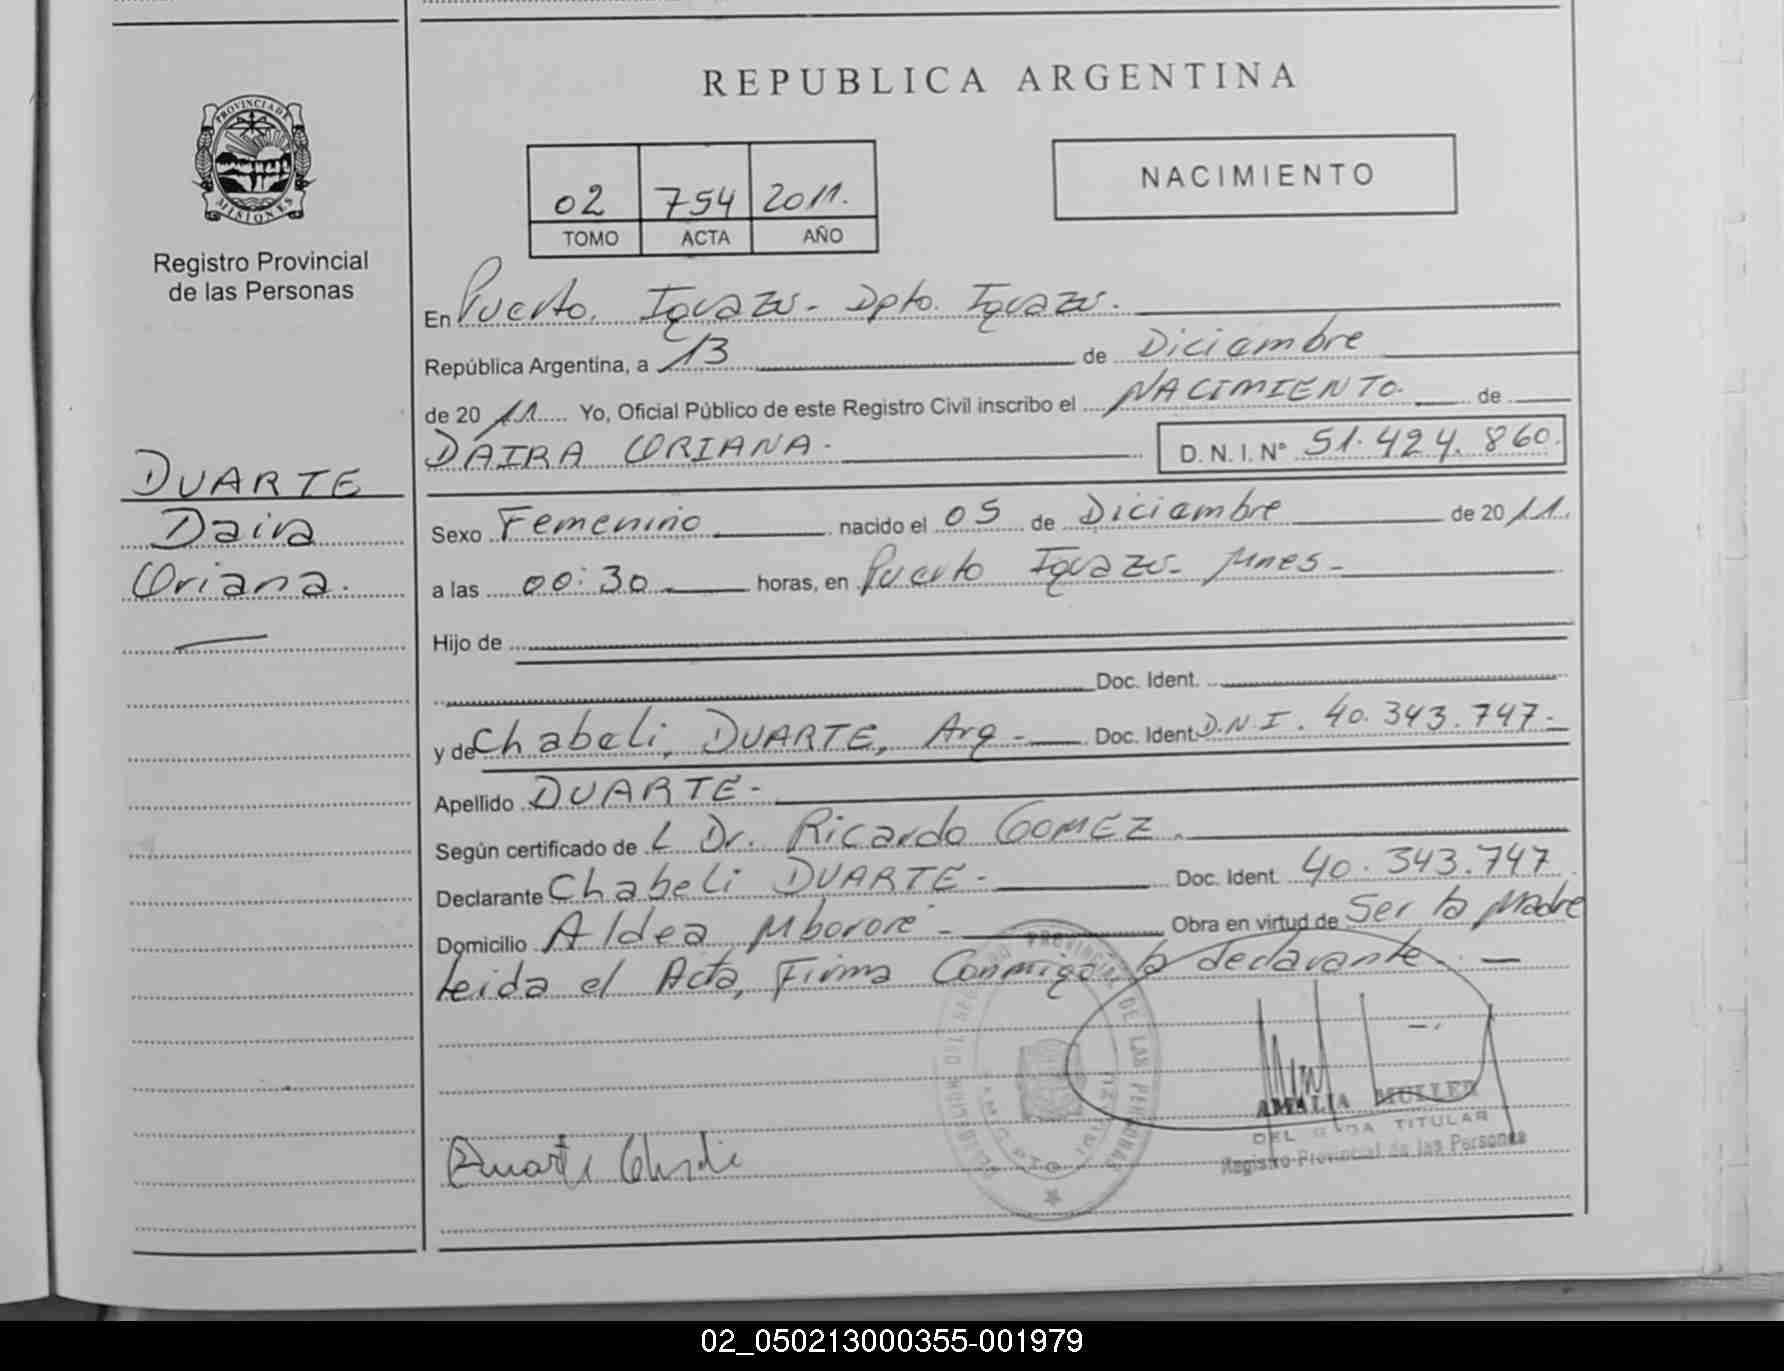 REPUBLICA ARGENTINA
PROVINCIA DE
MISIONES
Registro Provincial
de las Personas
02 754 2011.
TOMO ACTA AÑO
NACIMIENTO
En Puerto Iguazú - Dpto. Iguazú.
República Argentina, a 13 de Diciembre
de 20 11 Yo, Oficial Público de este Registro Civil inscribo el NACIMIENTO de
DAIRA ORIANA. D. N. I. Nº 51.424.860.
DUARTE
Daira
Oriana.
Sexo Femenino nacido el 05 de Diciembre de 20 11.
a las 00:30 horas, en Puerto Iguazú - Mnes -
Hijo de
Doc. Ident.
y de Chabeli, DUARTE, Arg - Doc. Ident. D.N.I. 40.343.747-
Apellido DUARTE -
Según certificado de L Dr. Ricardo GOMEZ.
Declarante Chabeli DUARTE - Doc. Ident. 40.343.747
Domicilio Aldea Mbororé - Obra en virtud de Ser la Madre
Leida el Acta, Firma Conmigo la declarante. -
PROVINCIAL DE LAS PERSONAS
AMALIA MULLER
DELEGADA TITULAR
Registro Provincial de las Personas
Duarte Chabeli
02_050213000355-001979